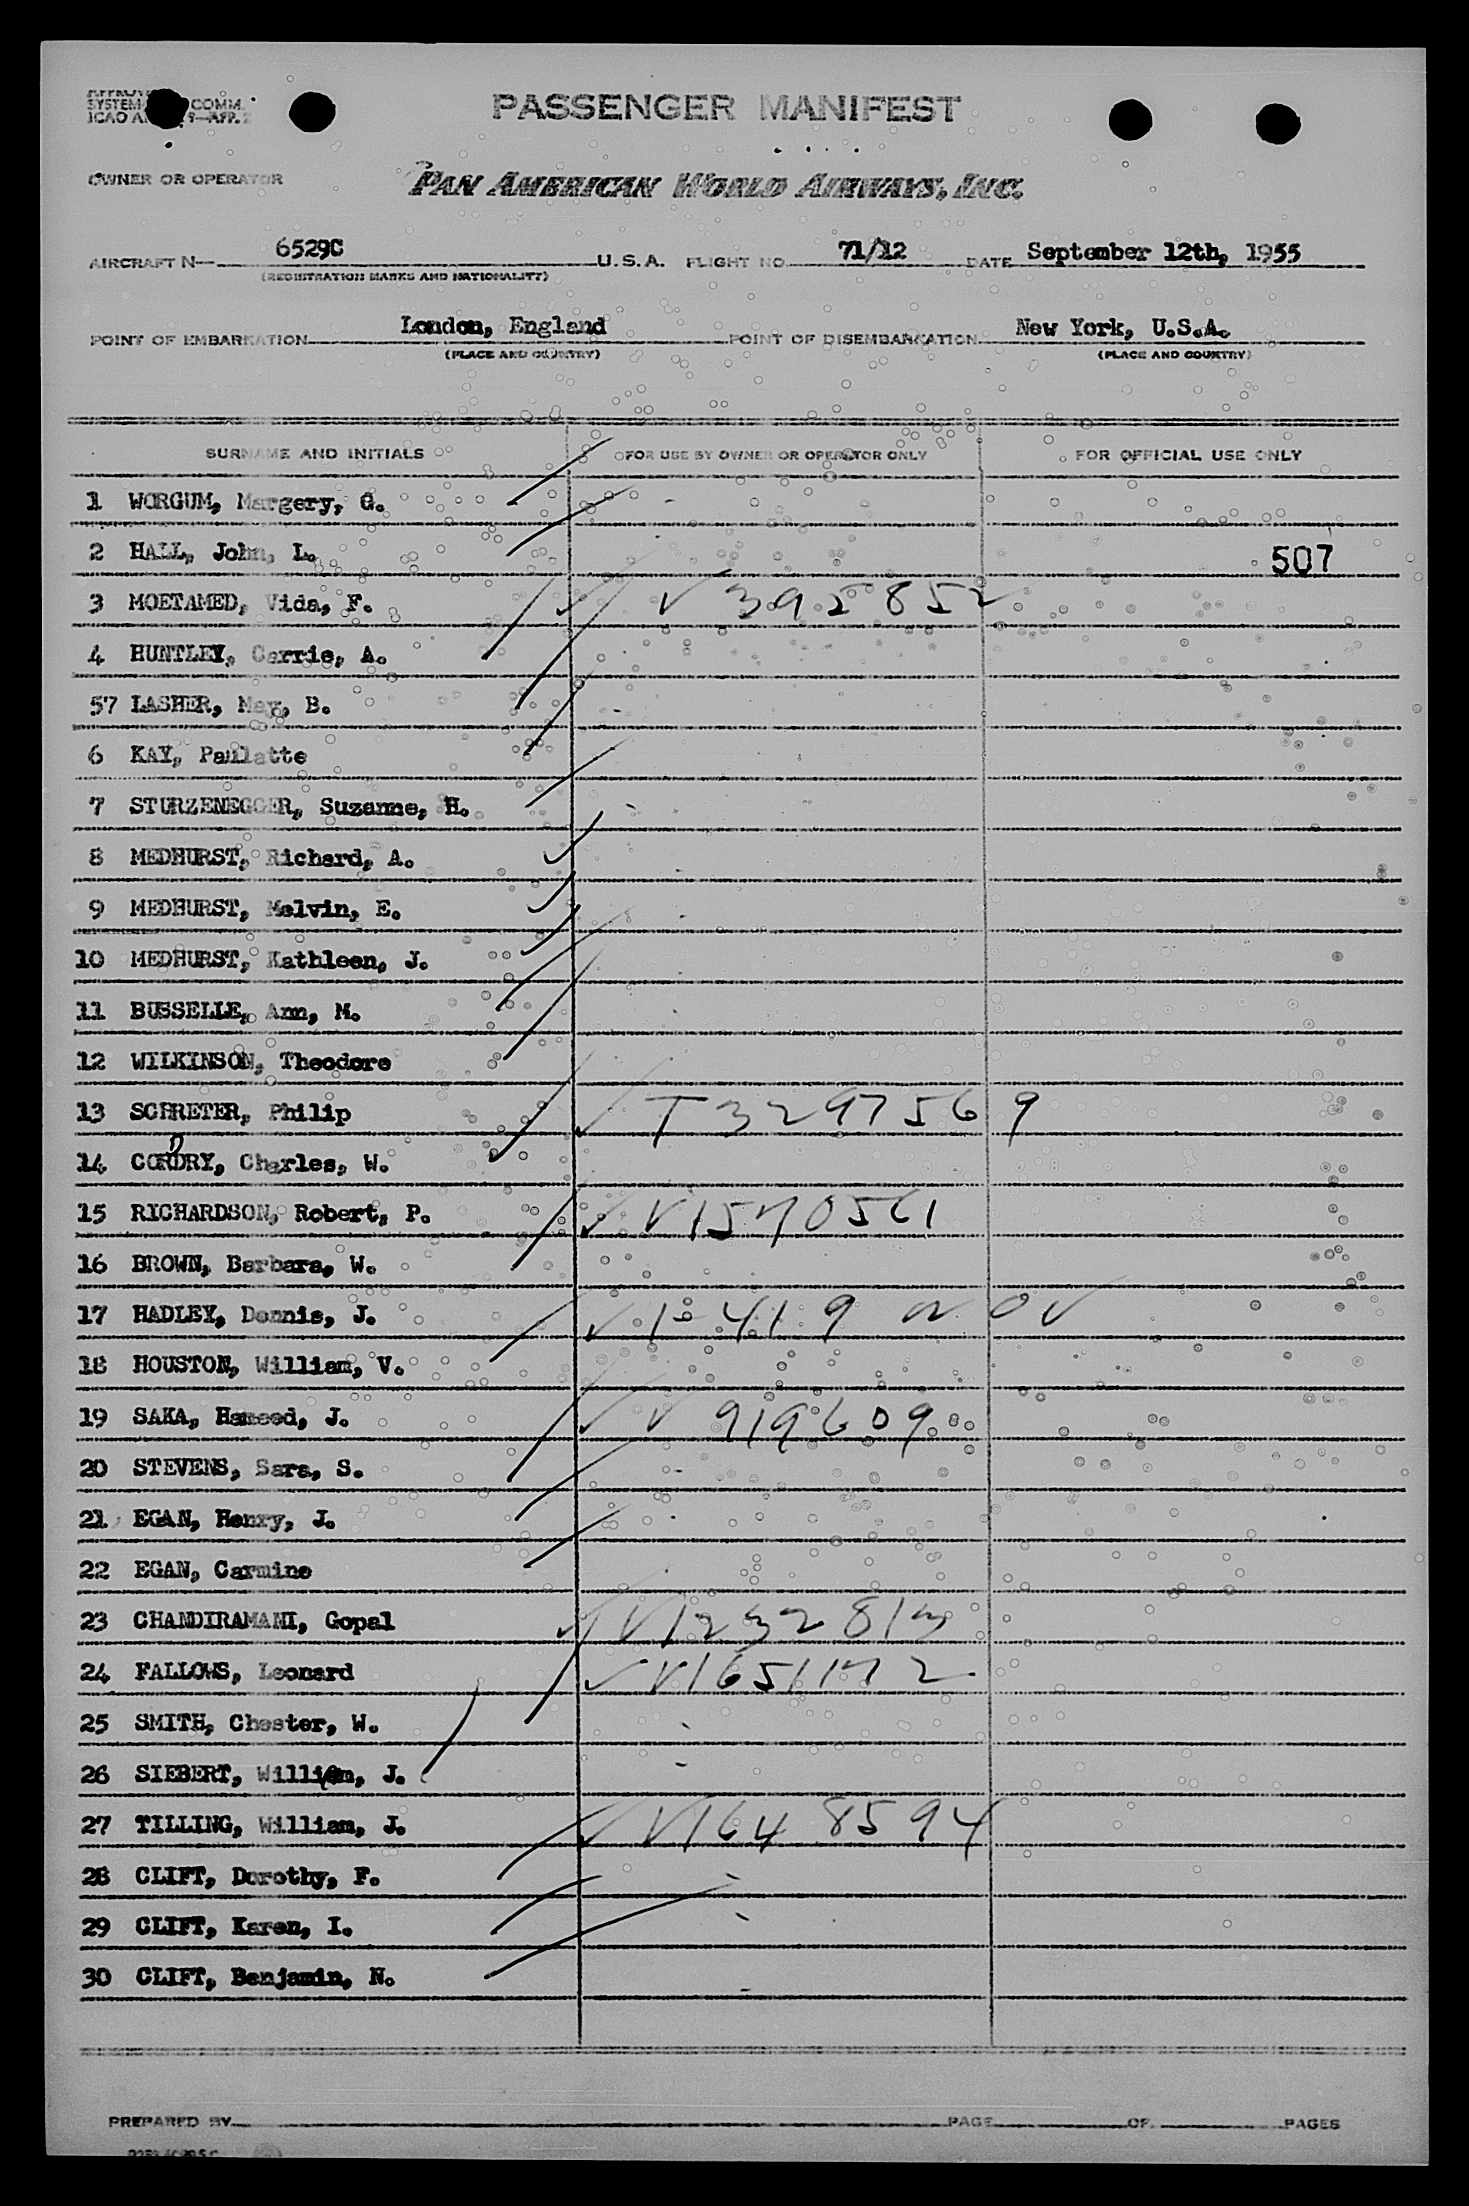 SYSTEM COMM.
ICAO A 9—APP. 2
PASSENGER MANIFEST
OWNER OR OPERATOR
PAN AMERICAN WORLD AIRWAYS, INC.
AIRCRAFT N— 6529C U.S.A. FLIGHT NO. 71/12 DATE September 12th, 1955
(REGISTRATION MARKS AND NATIONALITY)
POINT OF EMBARKATION London, England POINT OF DISEMBARKATION New York, U.S.A.
(PLACE AND COUNTRY) (PLACE AND COUNTRY)
SURNAME AND INITIALS FOR USE BY OWNER OR OPERATOR ONLY FOR OFFICIAL USE ONLY
1 WORGUM, Margery, G.
2 HALL, John, L. 507
3 MOETAMED, Vida, F. V 392852
4 HUNTLEY, Carrie, A.
57 LASHER, May, B.
6 KAY, Paulatte
7 STURZENEGGER, Suzanne, H.
8 MEDHURST, Richard, A.
9 MEDHURST, Melvin, E.
10 MEDHURST, Kathleen, J.
11 BUSSELLE, Ann, M.
12 WILKINSON, Theodore
13 SCHRETER, Philip T 3297569
14 CORDRY, Charles, W.
15 RICHARDSON, Robert, P. V1570561
16 BROWN, Barbara, W.
17 HADLEY, Dennis, J.
18 HOUSTON, William, V.
19 SAKA, Hameed, J. V 919609
20 STEVENS, Sara, S.
21 EGAN, Henry, J.
22 EGAN, Carmine
23 CHANDIRAMANI, Gopal V1232813
24 FALLOWS, Leonard V1651172
25 SMITH, Chester, W.
26 SIEBERT, William, J.
27 TILLING, William, J. V1648594
28 CLIFT, Dorothy, F.
29 CLIFT, Karen, I.
30 CLIFT, Benjamin, N.
PREPARED BY PAGE OF PAGES